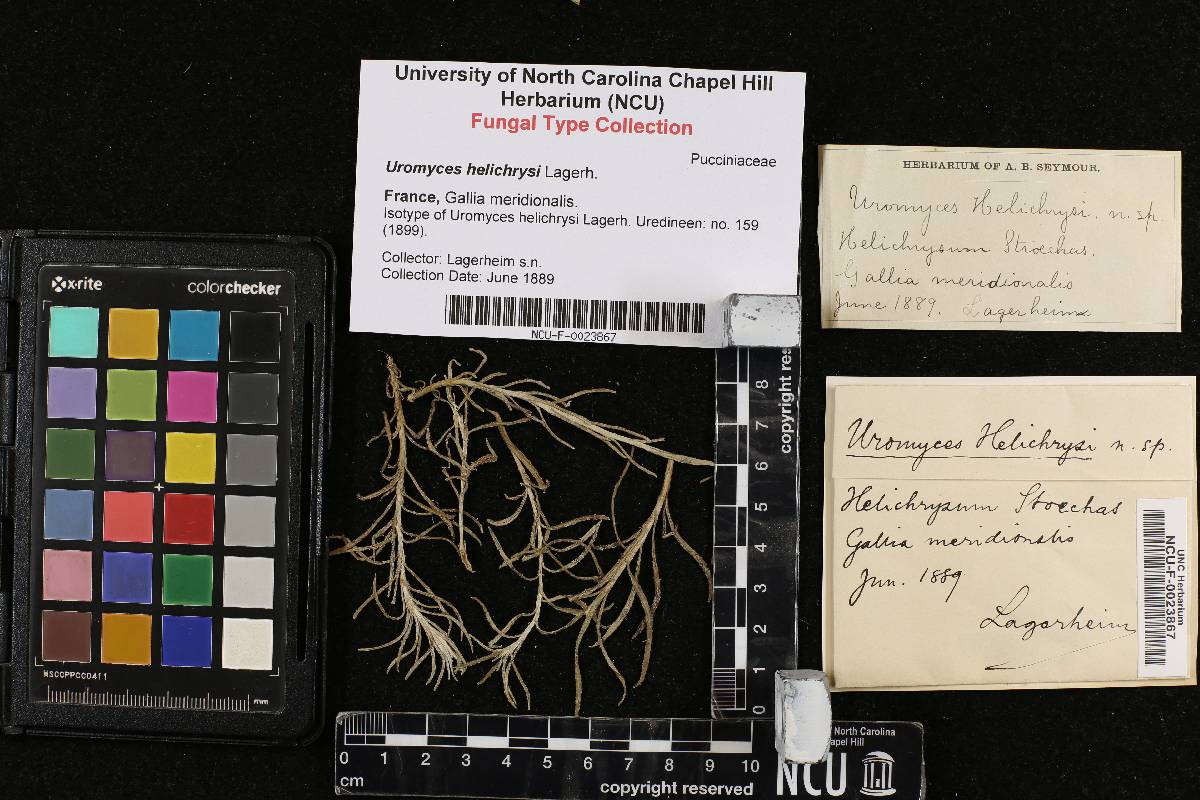 University of North Carolina Chapel Hill
Herbarium (NCU)
Fungal Type Collection
Pucciniaceae
Uromyces helichrysi Lagerh.
France, Gallia meridionalis.
Isotype of Uromyces helichrysi Lagerh. Uredineen: no. 159
(1899).
Collector: Lagerheim s.n.
Collection Date: June 1889
NCU-F-0023867
HERBARIUM OF A. B. SEYMOUR.
Uromyces Helichrysi. n. sp.
Helichrysum Stoechas.
Gallia meridionalis
June 1889. Lagerheim
Uromyces Helichrysi n. sp.
Helichrysum Stoechas
Gallia meridionalis
Jun. 1889
Lagerheim
UNC Herbarium
NCU-F-0023867
x-rite
colorchecker
MSCCPPCC0411
mm
copyright res
8
7
6
5
4
3
2
1
0
0 1 2 3 4 5 6 7 8 9 10
cm
copyright reserved
North Carolina
apel Hill
NCU